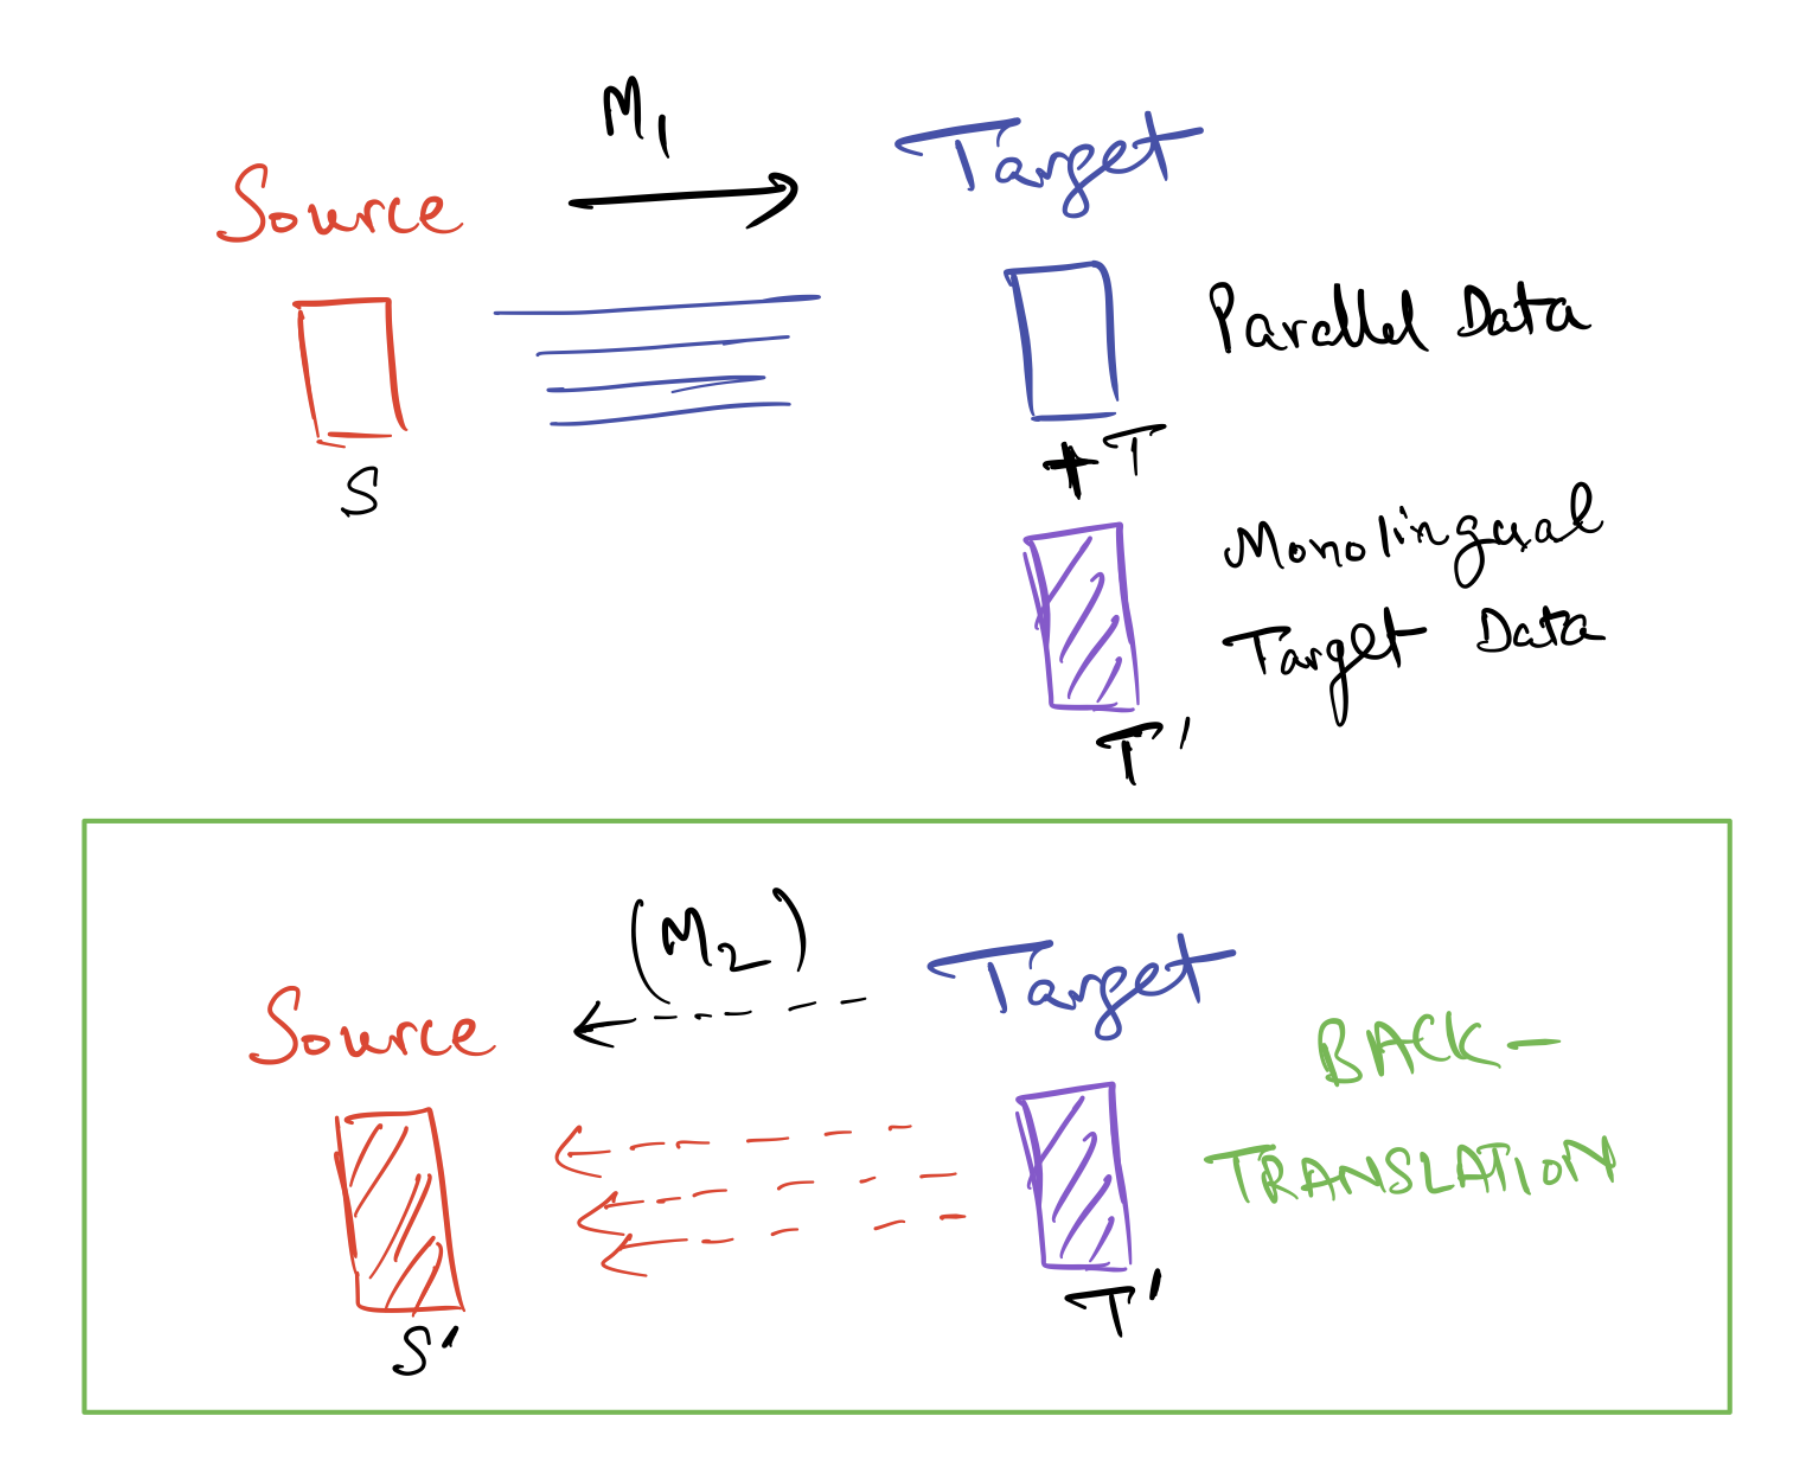 M1
Source
Target
Parallel Data
S
+ T
Monolingual
Target Data
T'
(M2)
Source
Target
BACK-
TRANSLATION
S'
T'